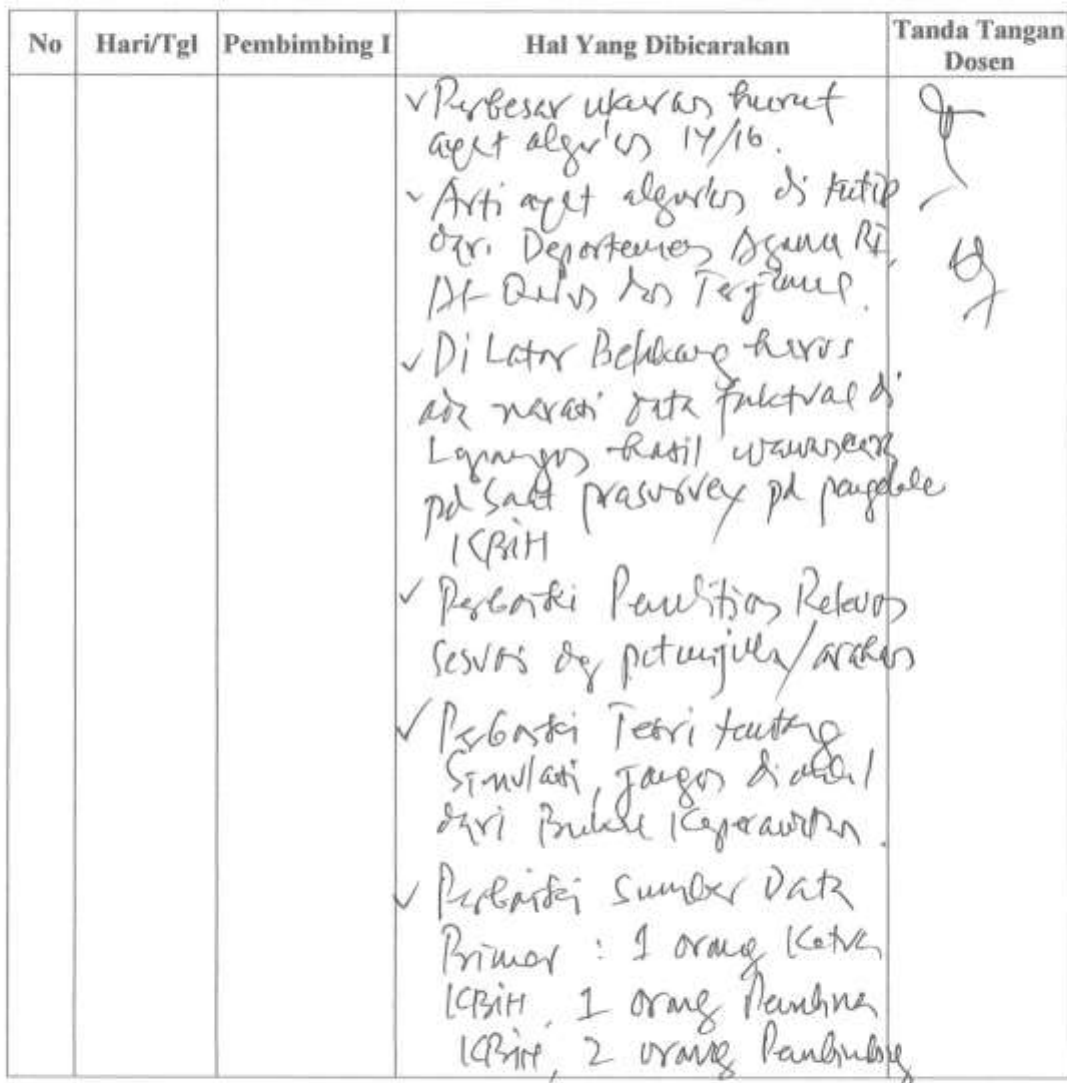 No Hari/Tgl Pembimbing I Hal Yang Dibicarakan Tanda Tangan Dosen
✓ Perbesar ukuran huruf
ayat alqur'an 14/16.
✓ Arti ayat alqur'an di kutip
dari Departemen Agama RI,
Al-Qur'an dan Terjemah.
✓ Di Latar Belakang harus
ada narasi data faktual di
Lapangan hasil wawancara
pd saat prasurvey pd pengelola
KBIH
✓ Perbaiki Penelitian Relevan
sesuai dg petunjuk/arahan
✓ Perbaiki Teori tentang
Simulasi, jangan diambil
dari Buku Keperawatan.
✓ Perbaiki Sumber Data
Primer : 1 orang Ketua
KBIH, 1 orang Pembina
KBIH, 2 orang Pembimbing